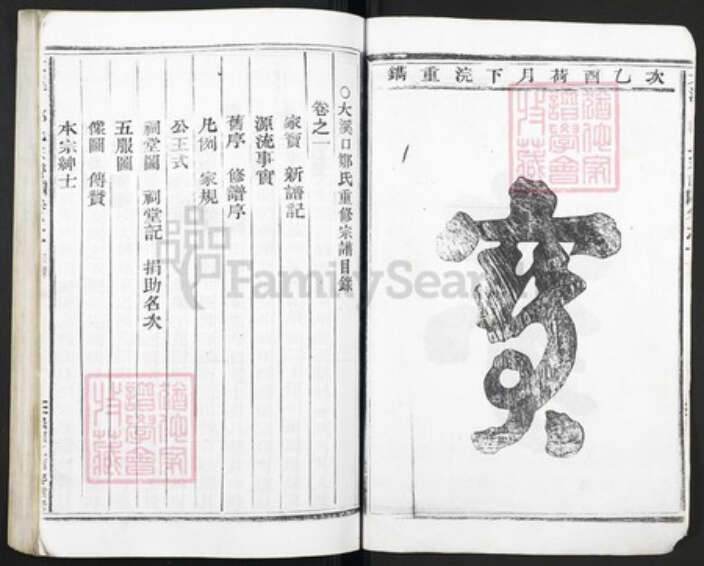 次乙酉荷月下浣重鐫
寶
○大溪口鄭氏重修宗譜目錄
卷之一
家寶 新譜記
源流事實
舊序 修譜序
凡例 家規
公王式
祠堂圖 祠堂記 捐助名次
五服圖
像圖 傳贊
本宗紳士
FamilySearch